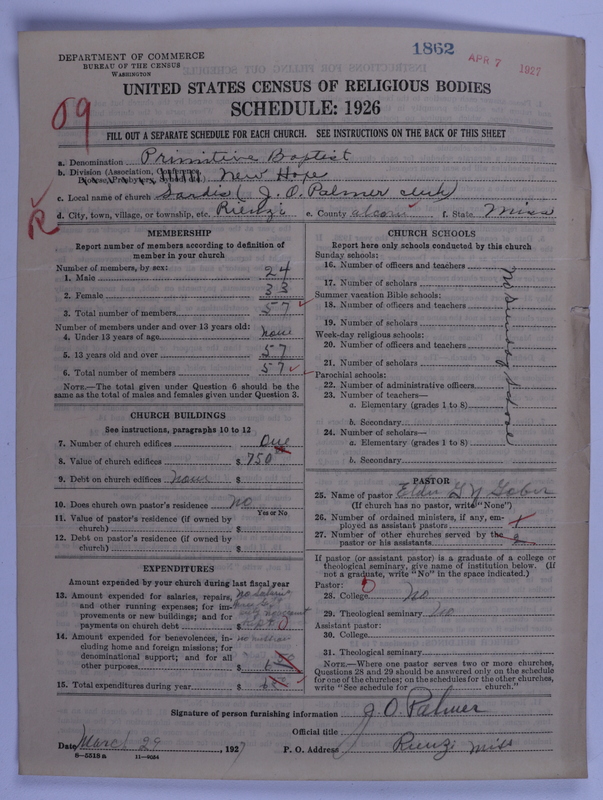 1862
APR 7 1927
DEPARTMENT OF COMMERCE
BUREAU OF THE CENSUS
WASHINGTON
UNITED STATES CENSUS OF RELIGIOUS BODIES
SCHEDULE: 1926
FILL OUT A SEPARATE SCHEDULE FOR EACH CHURCH. SEE INSTRUCTIONS ON THE BACK OF THIS SHEET
a. Denomination Primitive Baptist
b. Division (Association, Conference, New Hope
c. Local name of church Sardis (J. O. Palmer clerk)
d. City, town, village, or township, etc. Rienzi e. County alcorn f. State Miss
R
MEMBERSHIP
Report number of members according to definition of
member in your church
Number of members, by sex:
1. Male 24
2. Female 33
3. Total number of members 57
Number of members under and over 13 years old:
4. Under 13 years of age none
5. 13 years old and over 57
6. Total number of members 57
NOTE.—The total given under Question 6 should be the
same as the total of males and females given under Question 3.
CHURCH BUILDINGS
See instructions, paragraphs 10 to 12
7. Number of church edifices One
8. Value of church edifices $ 750
9. Debt on church edifices none $
10. Does church own pastor's residence No
Yes or No
11. Value of pastor's residence (if owned by
church) $
12. Debt on pastor's residence (if owned by
church) $
EXPENDITURES
Amount expended by your church during last fiscal year
13. Amount expended for salaries, repairs,
and other running expenses; for im-
provements or new buildings; and for
payments on church debt
14. Amount expended for benevolences, in-
cluding home and foreign missions; for
denominational support; and for all
other purposes $
15. Total expenditures during year $
CHURCH SCHOOLS
Report here only schools conducted by this church
Sunday schools:
16. Number of officers and teachers
17. Number of scholars
Summer vacation Bible schools:
18. Number of officers and teachers
19. Number of scholars
Week-day religious schools:
20. Number of officers and teachers
21. Number of scholars
Parochial schools:
22. Number of administrative officers
23. Number of teachers—
a. Elementary (grades 1 to 8)
b. Secondary
24. Number of scholars—
a. Elementary (grades 1 to 8)
b. Secondary
No Sunday School
PASTOR
25. Name of pastor Elder
(If church has no pastor, write "None")
26. Number of ordained ministers, if any, em-
ployed as assistant pastors
27. Number of other churches served by the
pastor or his assistants 2
If pastor (or assistant pastor) is a graduate of a college or
theological seminary, give name of institution below. (If
not a graduate, write "No" in the space indicated.)
Pastor:
28. College No
29. Theological seminary No
Assistant pastor:
30. College
31. Theological seminary
NOTE.—Where one pastor serves two or more churches,
Questions 28 and 29 should be answered only on the schedule
for one of the churches; on the schedules for the other churches,
write "See schedule for church."
Signature of person furnishing information J. O. Palmer
Official title
Date March 29, 1927 P. O. Address Rienzi Miss
8—5518a 11—9054